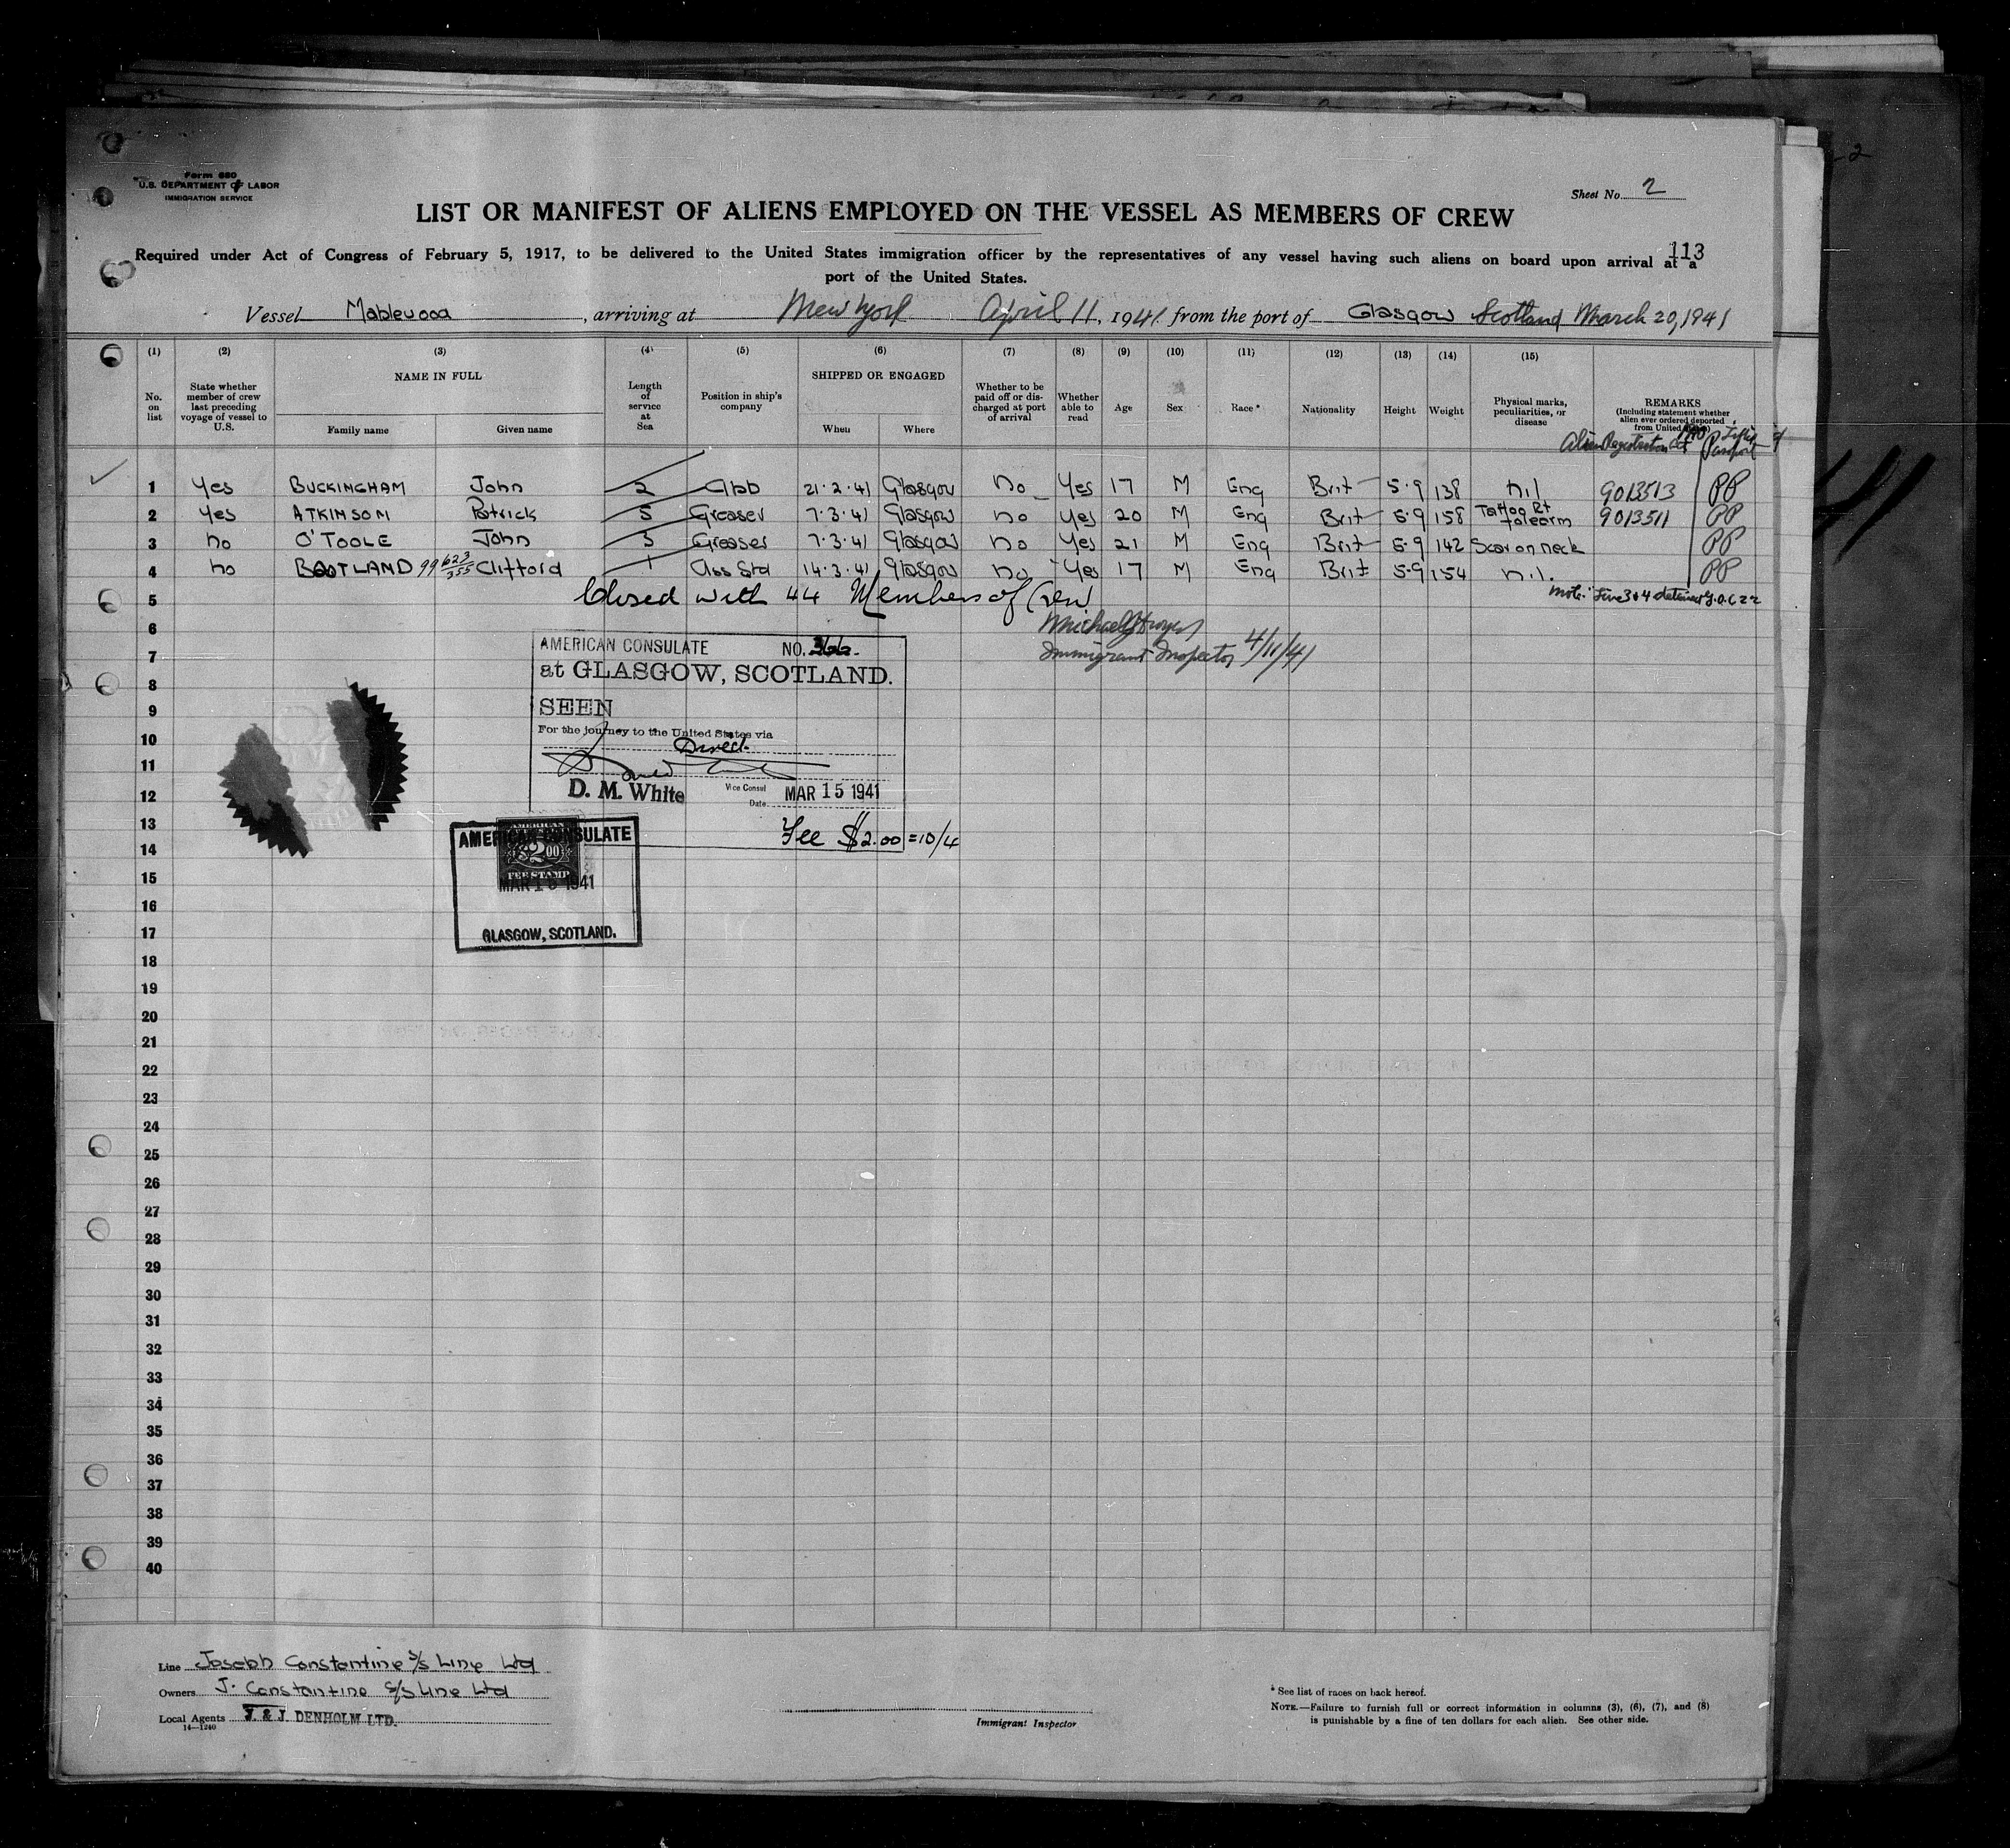 Form 680
U.S. DEPARTMENT OF LABOR
IMMIGRATION SERVICE
Sheet No. 2
LIST OR MANIFEST OF ALIENS EMPLOYED ON THE VESSEL AS MEMBERS OF CREW
113
Required under Act of Congress of February 5, 1917, to be delivered to the United States immigration officer by the representatives of any vessel having such aliens on board upon arrival at a
port of the United States.
Vessel Maplewood, arriving at New York April 11, 1941 from the port of Glasgow Scotland March 20, 1941
(1) (2) (3) (4) (5) (6) (7) (8) (9) (10) (11) (12) (13) (14) (15)
No. on list
State whether member of crew last preceding voyage of vessel to U.S.
NAME IN FULL
Family name Given name
Length of service at Sea
Position in ship's company
SHIPPED OR ENGAGED
When Where
Whether to be paid off or discharged at port of arrival
Whether able to read
Age Sex Race* Nationality Height Weight
Physical marks, peculiarities, or disease
REMARKS
(Including statement whether alien ever ordered deported from United States)
Alien Registration Act 1940 Passport
1 Yes BUCKINGHAM John 2 Abb 21.2.41 Glasgow No Yes 17 M Eng Brit 5.9 138 nil 9013513 PP
2 Yes ATKINSON Patrick 5 Greaser 7.3.41 Glasgow no Yes 20 M Eng Brit 5.9 158 Tattoo Rt forearm 9013511 PP
3 no O'TOOLE John 3 Greaser 7.3.41 Glasgow No Yes 21 M Eng Brit 5.9 142 Scar on neck PP
4 no BOOTLAND 99 623/355 Clifford 1 Ass Std 14.3.41 Glasgow no Yes 17 M Eng Brit 5.9 154 nil. PP
5 Closed with 44 Members of Crew
Note: Line 3 & 4 detained
6
7
8
9
10
11
12
13
14
15
16
17
18
19
20
21
22
23
24
25
26
27
28
29
30
31
32
33
34
35
36
37
38
39
40
Immigrant Inspector 4/11/41
AMERICAN CONSULATE NO.
at GLASGOW, SCOTLAND.
SEEN
For the journey to the United States via
Direct.
D. M. White Vice Consul
Date MAR 15 1941
Fee $2.00 = 10/4
AMERICAN CONSULATE
AMERICAN
$2.00
FEE STAMP
MAR 15 1941
GLASGOW, SCOTLAND.
Line Joseph Constantine S/S Line Ltd
Owners J. Constantine S/S Line Ltd
Local Agents J. & J. DENHOLM LTD.
14—1240
Immigrant Inspector
* See list of races on back hereof.
NOTE.—Failure to furnish full or correct information in columns (3), (6), (7), and (8)
is punishable by a fine of ten dollars for each alien. See other side.